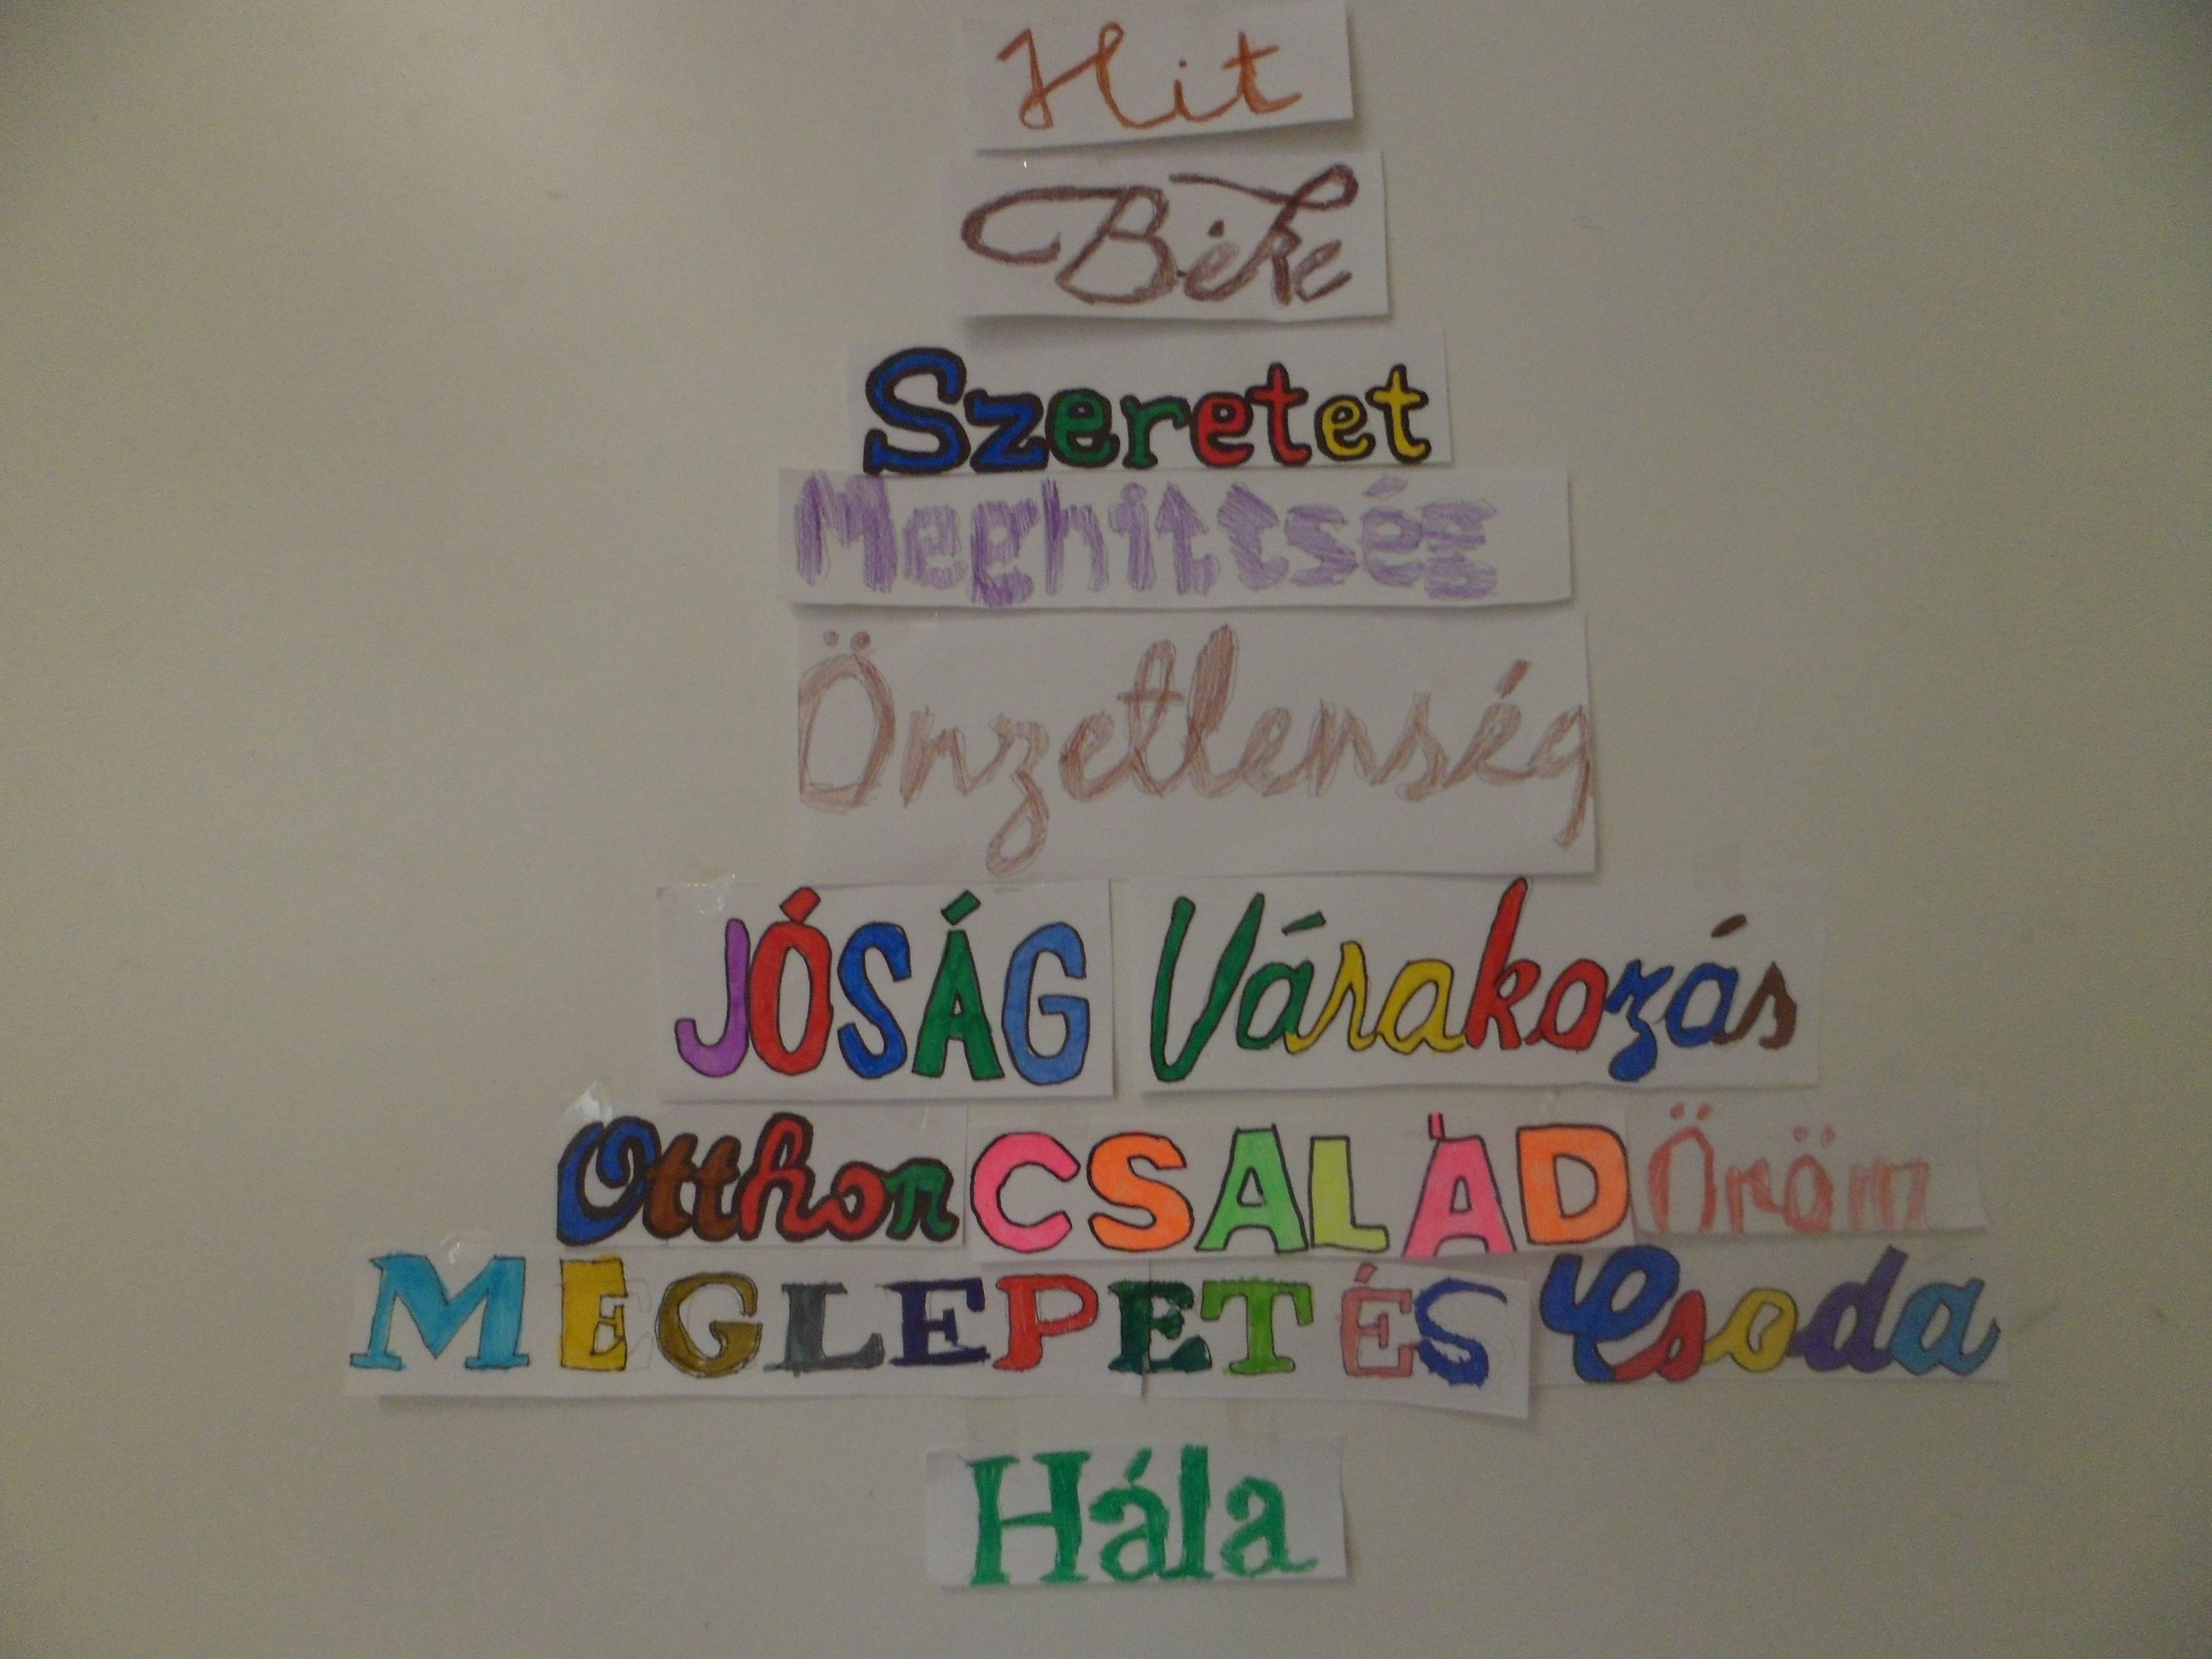 Hit
Béke
Szeretet
Meghittség
Önzetlenség
JÓSÁG Várakozás
Otthon CSALÁD Öröm
MEGLEPETÉS Csoda
Hála